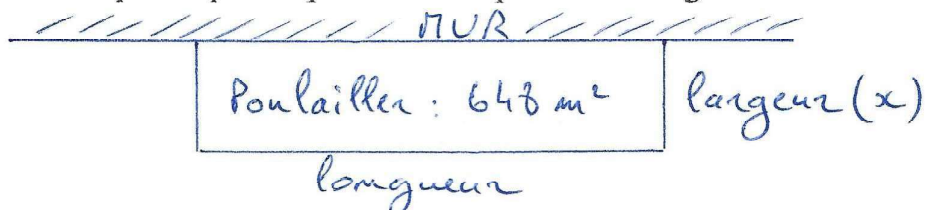 MUR
Poulailler : 648 m²
largeur (x)
longueur